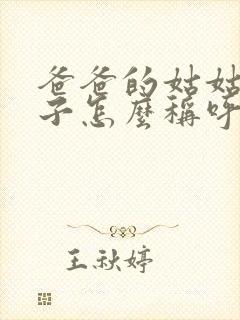 爸爸的姑姑
子怎麼稱呼
王秋婷